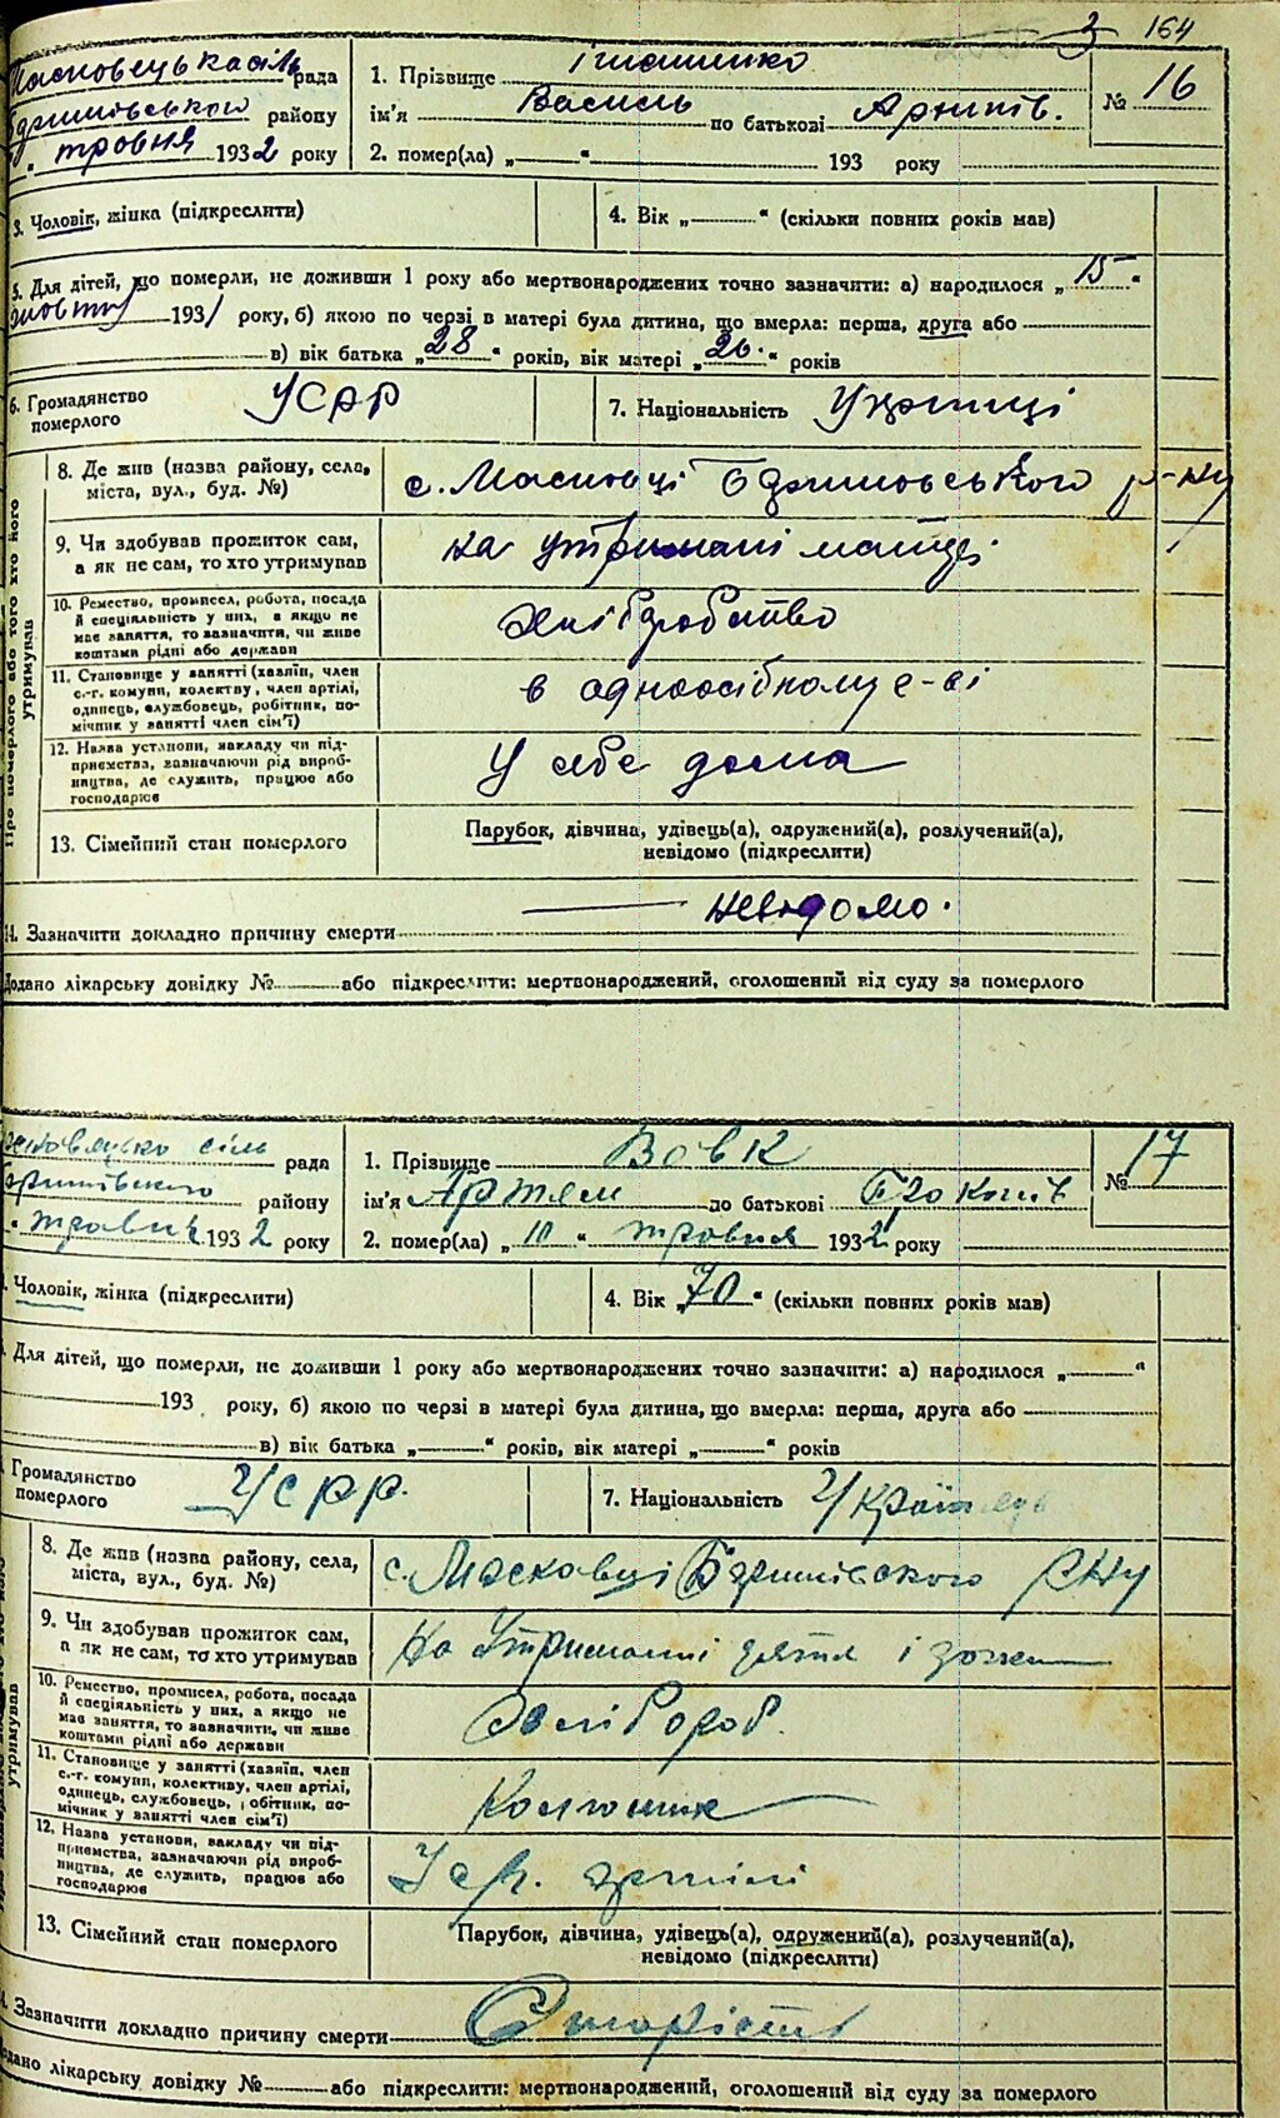 3 164
рада
району
травня 1932 року
1. Прізвище
ім'я Василь по батькові Архипів.
2. помер(ла) „ “ 193 року
№ 16
3. Чоловік, жінка (підкреслити)
4. Вік „ “ (скільки повних років мав)
5. Для дітей, що померли, не доживши 1 року або мертвонароджених точно зазначити: а) народилося „15“
жовтня 1931 року, б) якою по черзі в матері була дитина, що вмерла: перша, друга або
в) вік батька „28“ років, вік матері „26.“ років
6. Громадянство
померлого
УСРР
7. Національність
8. Де жив (назва району, села,
міста, вул., буд. №)
с. Масківці р-ну
9. Чи здобував прожиток сам,
а як не сам, то хто утримував
на утримані
10. Ремество, промисел, робота, посада
й спеціяльність у них, а якщо не
має заняття, то зазначити, чи живе
коштами рідні або держави
Хліборобство
11. Становище у занятті (хазяїн, член
с.-г. комуни, колективу, член артілі,
одинець, службовець, робітник, по-
мічник у занятті член сім'ї)
в одноосібному с-ві
12. Назва установи, закладу чи під-
приємства, зазначаючи рід вироб-
ництва, де служить, працює або
господарює
У себе дома
Про померлого або того хто його
утримував
13. Сімейний стан померлого
Парубок, дівчина, удівець(а), одружений(а), розлучений(а),
невідомо (підкреслити)
невідомо.
14. Зазначити докладно причину смерти
Додано лікарську довідку № або підкреслити: мертвонароджений, оголошений від суду за померлого
сіль рада
району
травня 1932 року
1. Прізвище Вовк
ім'я Артем по батькові Прокопів
2. помер(ла) „10“ травня 1932 року
№ 17
Чоловік, жінка (підкреслити)
4. Вік „70“ (скільки повних років мав)
Для дітей, що померли, не доживши 1 року або мертвонароджених точно зазначити: а) народилося „ “
193 року, б) якою по черзі в матері була дитина, що вмерла: перша, друга або
в) вік батька „ “ років, вік матері „ “ років
Громадянство
померлого
УСРР.
7. Національність
8. Де жив (назва району, села,
міста, вул., буд. №)
с. Масковці РНу
9. Чи здобував прожиток сам,
а як не сам, то хто утримував
На утриманні зятя і
10. Ремество, промисел, робота, посада
й спеціяльність у них, а якщо не
має заняття, то зазначити, чи живе
коштами рідні або держави
Хлібороб.
11. Становище у занятті (хазяїн, член
с.-г. комуни, колективу, член артілі,
одинець, службовець, робітник, по-
мічник у занятті член сім'ї)
Колгосник
12. Назва установи, закладу чи під-
приємства, зазначаючи рід вироб-
ництва, де служить, працює або
господарює
У с.г. артілі
утримував
13. Сімейний стан померлого
Парубок, дівчина, удівець(а), одружений(а), розлучений(а),
невідомо (підкреслити)
Зазначити докладно причину смерти Старість
лікарську довідку № або підкреслити: мертвонароджений, оголошений від суду за померлого